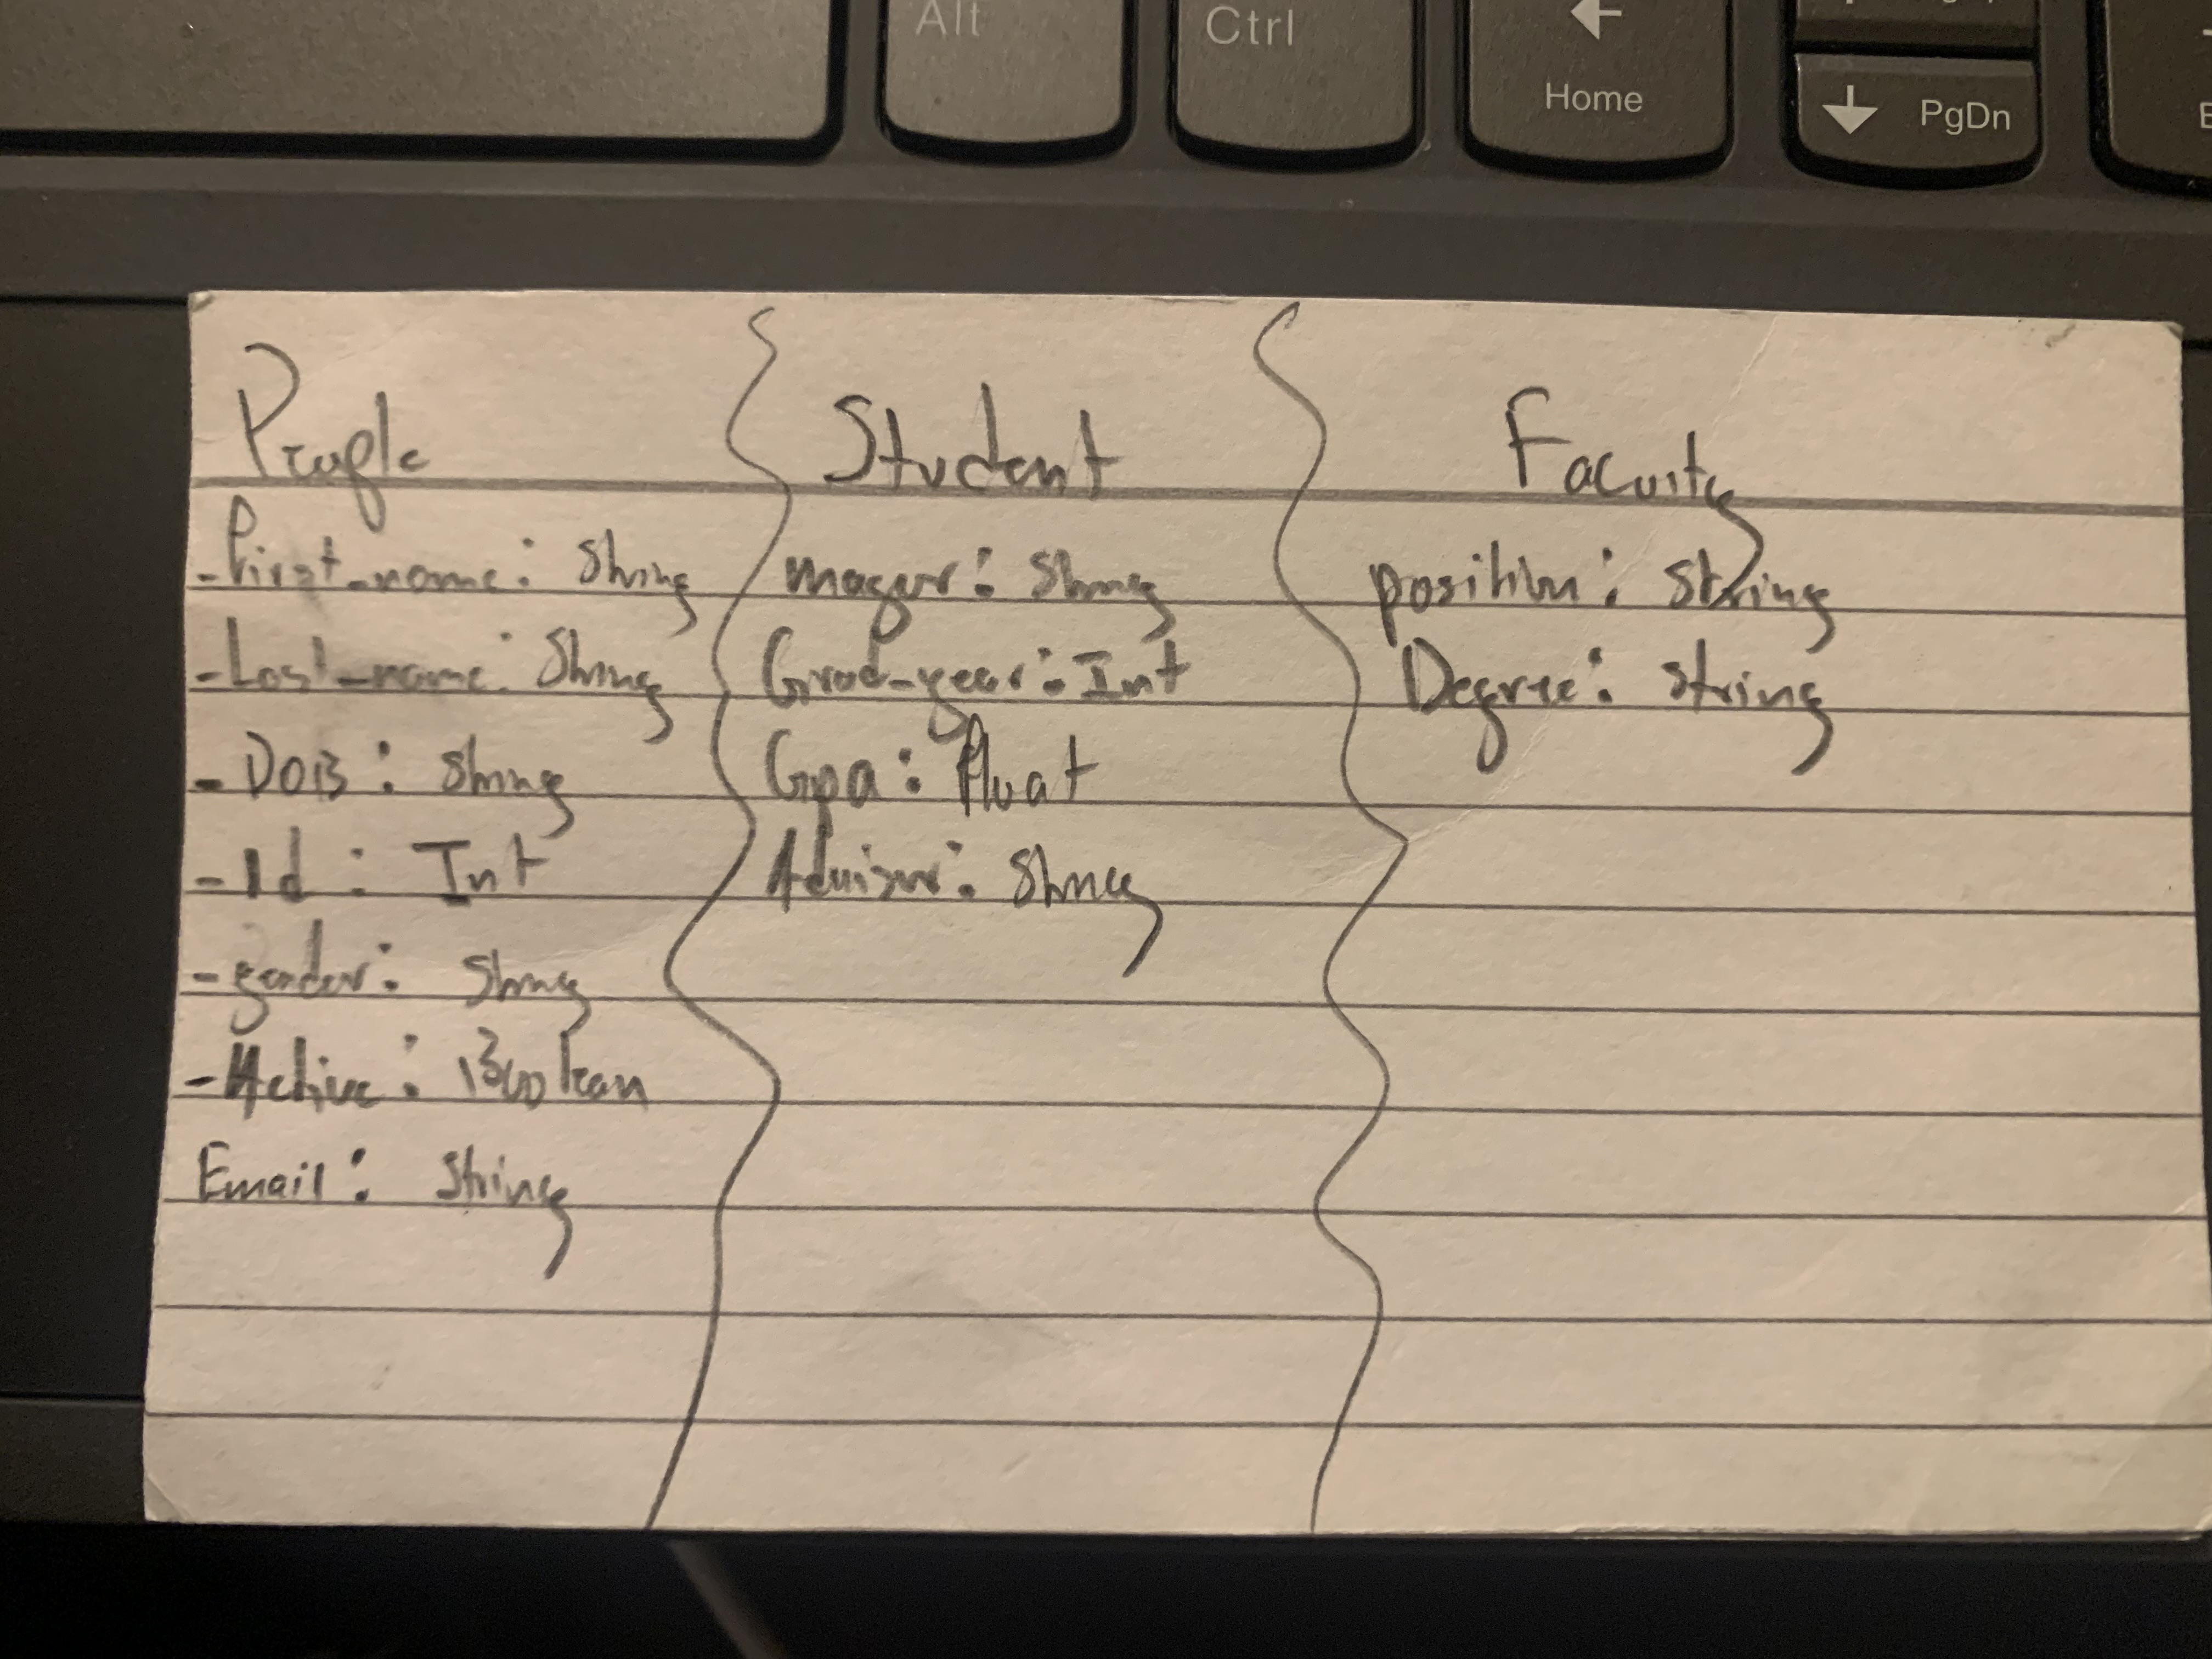 Alt
Ctrl
Home
PgDn
People
-first_name: String
-Last_name: String
-DOB: String
-Id: Int
-gender: String
-Active: Boolean
Email: String
Student
major: String
Grad-year: Int
Gpa: float
Advisor: String
Faculty
position: string
Degree: string